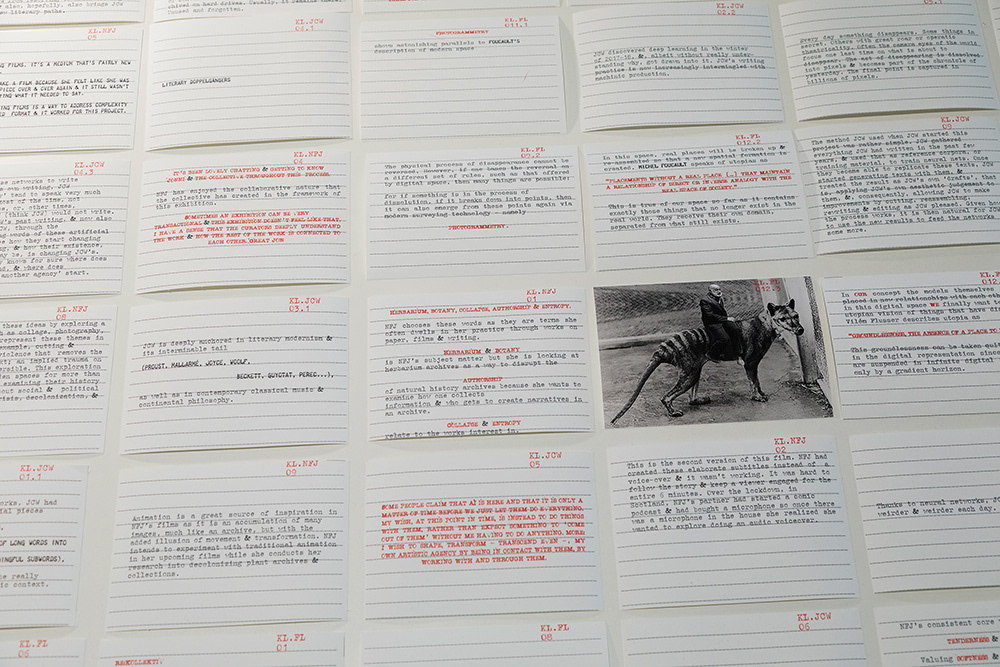 also, hopefully, also brings JCW
literary paths.
KL.NFJ
05
ING FILMS. IT'S A MEDIUM THAT'S FAIRLY NEW
AKE A FILM BECAUSE SHE FELT LIKE SHE WAS
PIECE OVER & OVER AGAIN & IT STILL WASN'T
ING WHAT IT NEEDED TO SAY.
ING FILMS IS A WAY TO ADDRESS COMPLEXITY
FORMAT & IT WORKED FOR THIS PROJECT.
unused and forgotten.
KL.JCW
04.1
LITERARY DOPPELGÄNGERS
KL.FL
011.1
PHOTOGRAMMETRY
shows astonishing parallels to FOUCAULT's
description of modern space
KL.JCW
02.2
JCW discovered deep learning in the winter
of 2017-18, &, albeit without really under-
standing why, got drawn into it. JCW's writing
practice is now increasingly intermingled with
machinic production.
05.1
Every day something disappears. Some things in
secret. Others with great fear or operatic
theatricality. Often the camera eyes of the world
focus one last time on what is about to
disappear. The act of disappearing is dissolved
into pixels & becomes part of the chronicle of
yesterday. The final point is captured in
billions of pixels.
KL.JCW
04.3
networks to write
own writing. JCW
tend to speak very much
most of the time, not
or, other times,
(think JCW) would not write.
JCW's past writing, & now also
JCWs, through the
ing-words of these artificial
how they start changing
& how their existence,
may be, is changing JCW's.
knows for sure where does
end, & where does
another agency' start.
KL.NFJ
04
IT'S BEEN LOVELY CHATTING & GETTING TO KNOW
JONES & THE COLLECTIVE THROUGHOUT THIS PROCESS.
NFJ has enjoyed the collaborative nature that
the collective has created in the framework of
this exhibition.
SOMETIMES AN EXHIBITION CAN BE VERY
TRANSACTIONAL & THIS EXHIBITION DOESN'T FEEL LIKE THAT.
I HAVE A SENSE THAT THE CURATORS DEEPLY UNDERSTAND
THE WORK & HOW THE REST OF THE WORK IS CONNECTED TO
EACH OTHER. GREAT JOB
KL.FL
09.2
The physical process of disappearance cannot be
reversed. However, if one bases the reversal on
a different set of rules, such as that offered
by digital space, then many things are possible:
For if something is in the process of
dissolution, if it breaks down into points, then
it can also emerge from these points again via
modern surveying technology – namely
PHOTOGRAMMETRY.
KL.FL
012.2
In this space, real places will be broken up &
re-assembled so that a new spatial formation is
created. MICHEL FOUCAULT speaks of utopias as
"PLACEMENTS WITHOUT A REAL PLACE [...] THAT MAINTAIN
A RELATIONSHIP OF DIRECT OR INVERSE ANALOGY WITH THE
REAL SPACE OF SOCIETY."
This is true of our space so far as it contains
exactly those things that no longer exist in the
real world. They receive their own domain,
separated from what still exists.
KL.JCW
09
The method JCW used when JCW started this
project was rather simple. JCW gathered
everything JCW had written in the past few
years, & used that as reference corpus, or
training material, to train neural nets. Once
they became able to produce unique texts, JCW
started generating texts with them, &
treated the results as JCW's own 'crafts', that
is, applying JCW's own aesthetic judgement to
them, &, consequently, allowing JCW to make
improvements by cutting, reassembling,
rewriting etc. as JCW pleased. Given how
the process works, it is then natural for JCW
to use the new results to feed the networks
some more.
KL.NFJ
08
these ideas by exploring a
such as collage, photography,
represent these themes in
example, cutting &
violence that removes the
an implied trauma on
This exploration
open spaces for more than
examining their history
about social & political
crisis, decolonisation, &
KL.JCW
03.1
JCW is deeply anchored in literary modernism &
its interminable tail
(PROUST, MALLARMÉ, JOYCE, WOOLF,
BECKETT, GUYOTAT, PEREC...),
as well as in contemporary classical music &
continental philosophy.
KL.NFJ
01
HERBARIUM, BOTANY, COLLAPSE, AUTHORSHIP & ENTROPY.
NFJ chooses these words as they are terms she
often dwells in her practice through works on
paper, films & writing.
HERBARIUM & BOTANY
is NFJ's subject matter but she is looking at
herbarium archives as a way to disrupt the
AUTHORSHIP
of natural history archives because she wants to
examine how one collects
information & who gets to create narratives in
an archive.
COLLAPSE & ENTROPY
relate to the works interest in.
KL.FL
012.1
KL.F
012
In OUR concept the models themselves
placed in new relationships with each oth
in this digital space WE finally want t
utopian vision of things that have di
Vilém Flusser describes utopia as
"GROUNDLESSNESS, THE ABSENCE OF A PLACE TO
This groundlessness can be taken quit
in the digital representation since
are suspended in infinite digital
only by a gradient horizon.
KL.JCW
01.1
works, JCW had
pieces
OF LONG WORDS INTO
NINGFUL SUBWORDS),
really
context.
KL.NFJ
09
Animation is a great source of inspiration in
NFJ's films as it is an accumulation of many
images, much like an archive, but with the
added illusion of movement & transformation. NFJ
intends to experiment with traditional animation
in her upcoming films while she conducts her
research into decolonizing plant archives &
collections.
KL.JCW
05
SOME PEOPLE CLAIM THAT AI IS HERE AND THAT IT IS ONLY A
MATTER OF TIME BEFORE WE JUST LET THEM DO EVERYTHING.
MY WISH, AT THIS POINT IN TIME, IS INSTEAD TO DO THINGS
WITH THEM, RATHER THAN EXPECT SOMETHING TO 'COME
OUT OF THEM' WITHOUT ME HAVING TO DO ANYTHING. MORE:
I WISH TO SHAPE, TRANSFORM – TRANSCEND EVEN –, MY
OWN ARTISTIC AGENCY BY BEING IN CONTACT WITH THEM, BY
WORKING WITH AND THROUGH THEM.
KL.NFJ
02
This is the second version of this film. NFJ had
created these elaborate subtitles instead of a
voice-over & it wasn't working. It was hard to
follow the story & keep a viewer engaged for the
entire 6 minutes. Over the lockdown, in
Scotland, NFJ's partner had started a comic
podcast & had bought a microphone so once there
was a microphone in the house she realized she
wanted to explore doing an audio voiceover.
Thanks to neural networks,
weirder & weirder each day.
KL.FL
06
KL.FL
01
KL.FL
08
KL.JCW
06
NFJ's consistent core
TENDERNESS &
Valuing SOFTNESS &